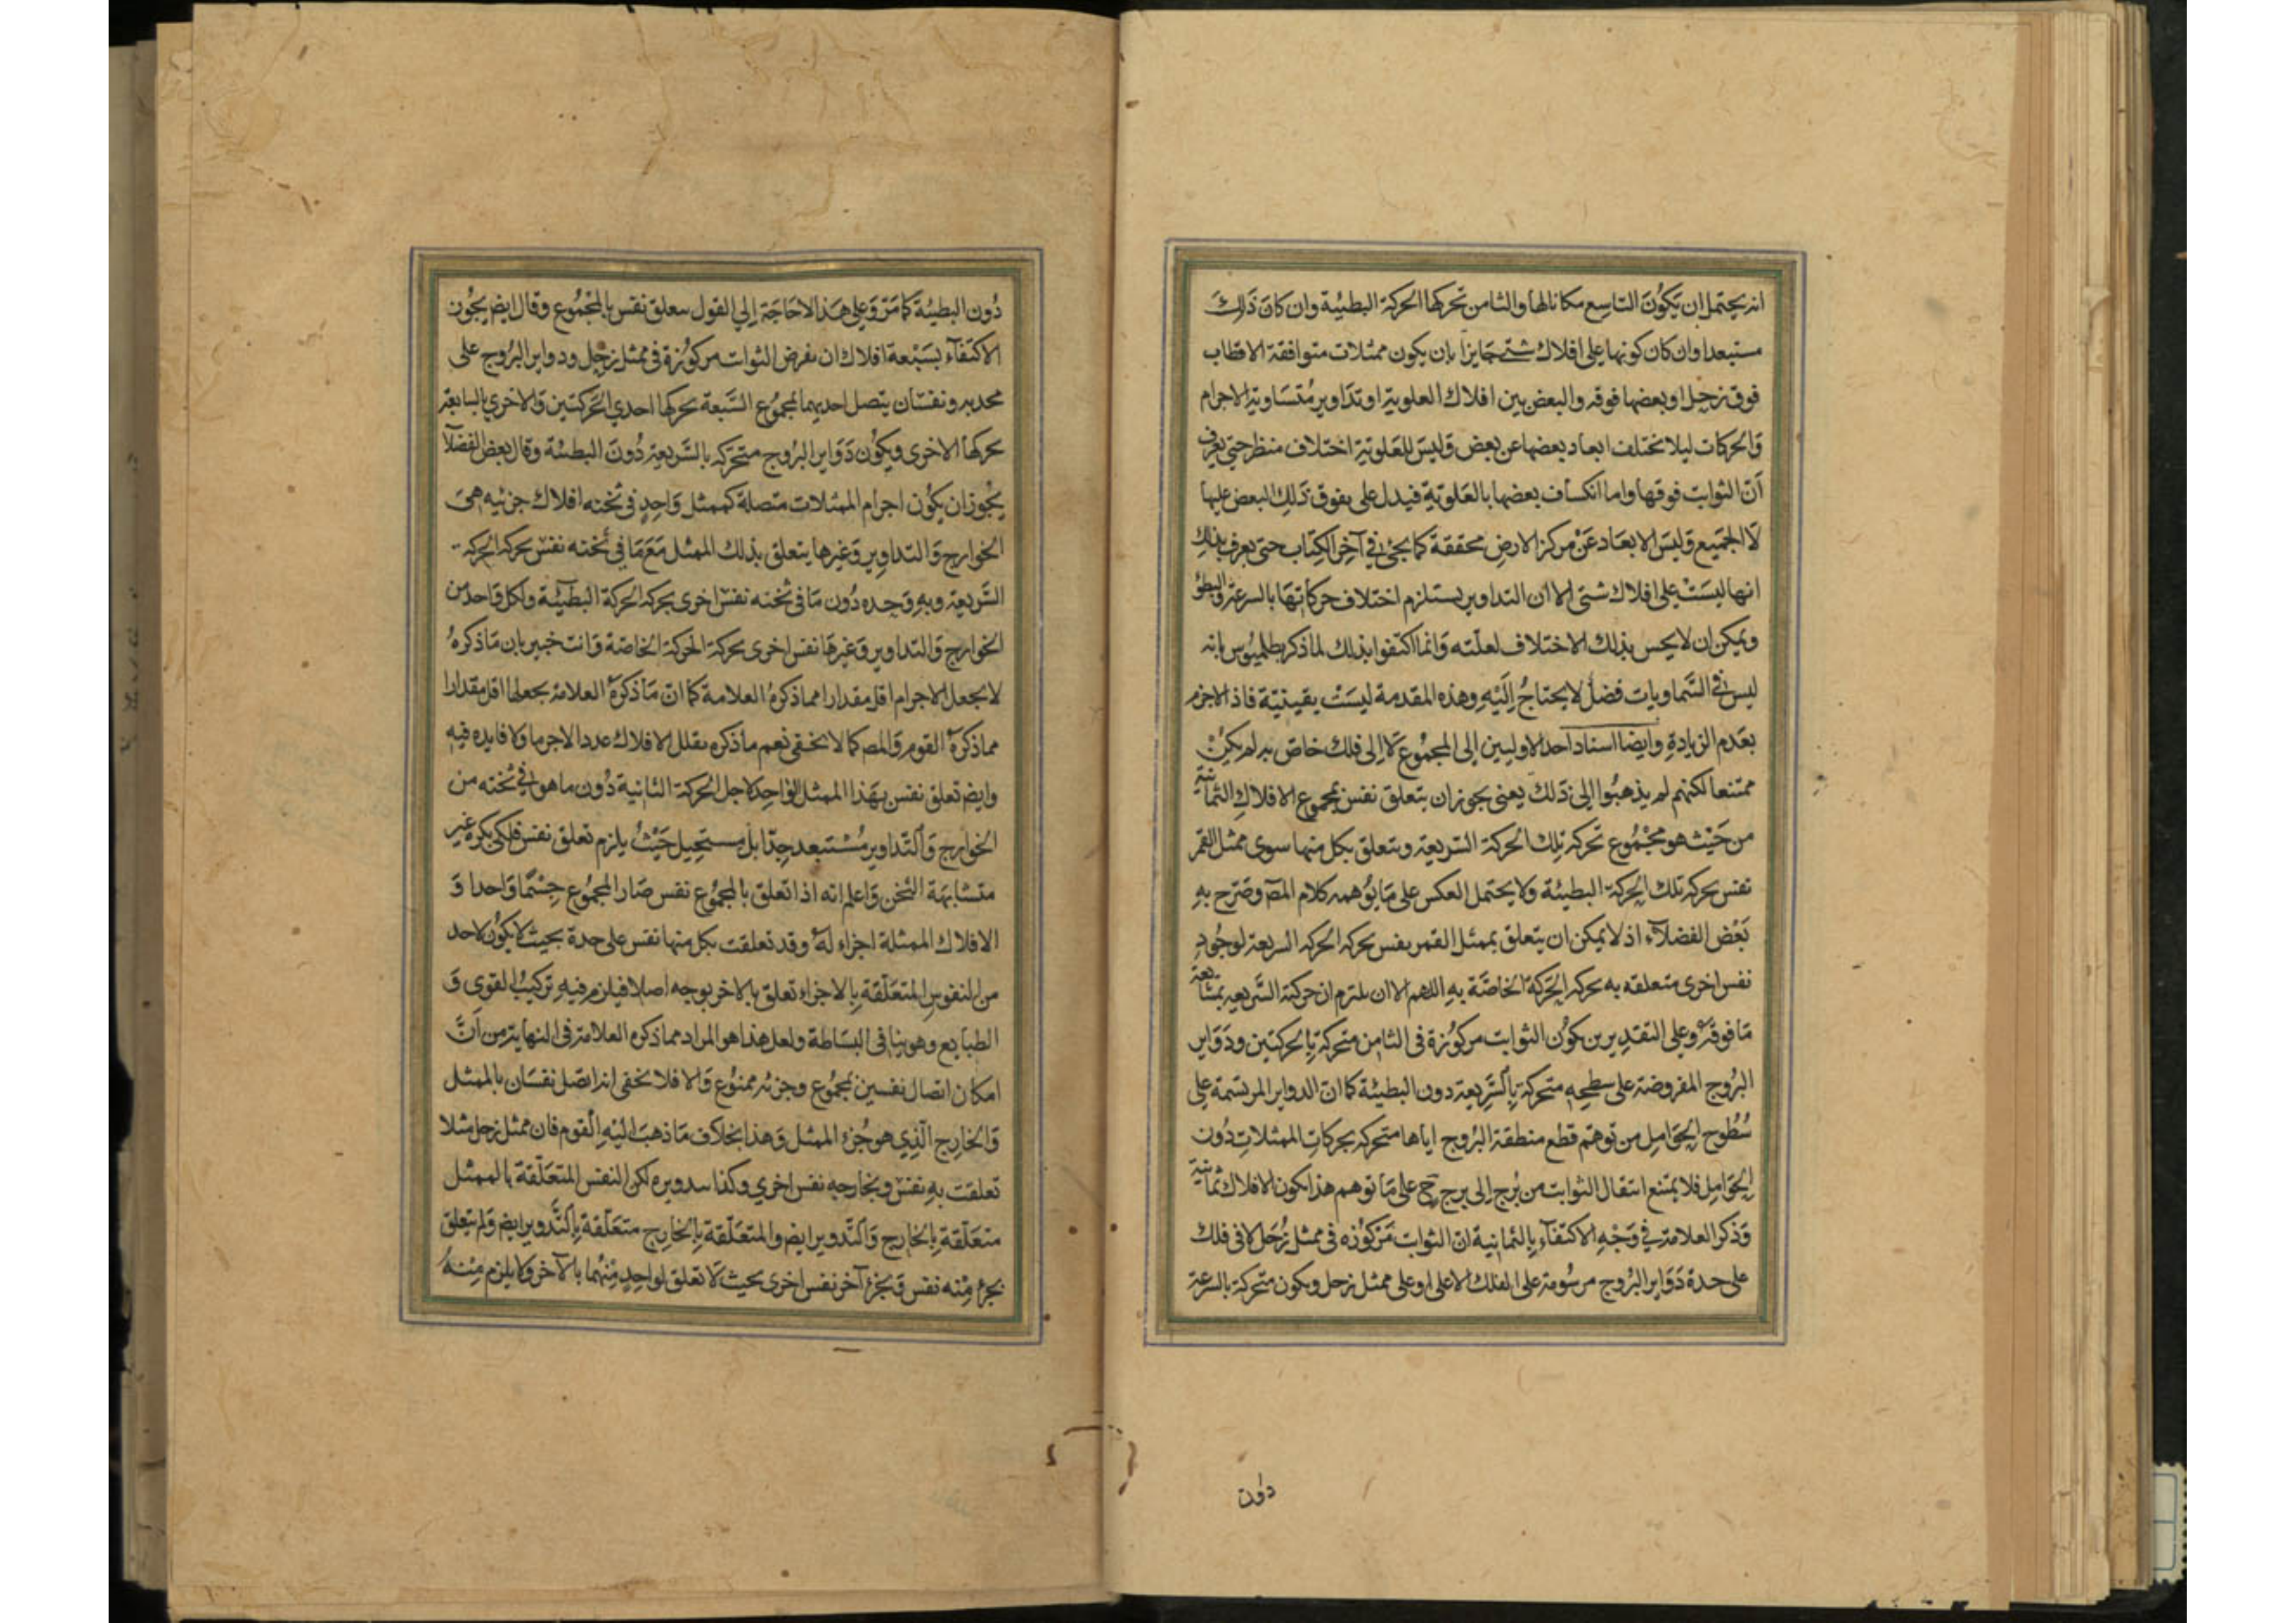 انه يحتمل ان يَكُونَ التاسِع مكانا لها والثامن تحركها الحركة البطيئة وان كانَ ذَالِكَ
مستبعدا وان كان كونها على افلاك شتى جايزا بان يكون ممثلات متوافقة الاقطاب
فوق زحل او بعضها فوقه والبعض بين افلاك العلوية او تداوير مُتسَاوية الاجرام
وَالحركات ليلا تختلف ابعاد بعضها عن بعض وَليسَ للعَلوية اختلاف منظر حتى يعرف
اَنّ الثوابت فوقها واما انكساف بعضها بالعَلويّة فيدل على بفوق ذلِك البعض عليها
لَا الجَميع وَليسَ الابعَاد عَنْ مركز الارضِ محققة كما يجئ في آخر الكتاب حتى يعرف بذلك
انها ليسَتْ على افلاك شتى الا ان التداوير يستلزم اختلاف حركاتهَا بالسرعة والبطؤ
ويمكن ان لا يحس بذلك الاختلاف لعلّته وَانما اكتفوا بذلك لما ذكر بطلميوس بانه
ليس في السَّماويات فضلٌ لا يحتاجُ اِلَيْهِ وهذه المقدمة ليسَتْ يقينيّة فاذ الاجزم
بعَدم الزيادةِ وايضا اسناد احد الاوليين الى المجمُوع لَا الى فلك خاص به لم يكنْ
ممتنعا لكنهم لم يذهبُوا الى ذَلك يعنى يجوز ان يتعلق نفس بمجموع الافلاكِ الثمانية
من حَيْث هو مجْمُوع تحركه تلك الحركة السريعة ويتعلق بكل منها سوى ممثل القمر
نفس يحركه تلك الحركة البطيئة ولا يحتمل العكس على مَا يوُهمه كلام المص وصَرّح بهِ
بَعْض الفضلآء اذ لا يمكن ان يتعلق بممثل القمر نفس يحركه الحركه السريعة لوجُودِ
نفس اخرى متعلقه به يحركه الحَركة الخاصّة به اللهم الا ان يلتزم ان حركته السَّريعة بمتابعة
مَا فوقهُ وعلى التقديرين يكوُن الثوابت مركوُزة فى الثامِن متحركة بِالحركتين ودَوَاير
البرُوج المفروضة على سطحِهِ متحركة بِالسَّرِيعة دون البطيئة كما انّ الدواير المرتسمة على
سُطُوح الحَوَامِل من توهّم قطع منطقة البرُوج اياها متحركه بحركاتِ الممثلات دُون
الحَوَامِل فلا يمتنع انتقال الثوابت من بُرج الى برج ح على مَا توهم هذا كون الافلاك ثمانية
وَذكر العلامة في وَجْهِ الاكتفآء بِالثمانية انّ الثوابت مَركوُزه فى ممثل زُحَل لا فى فلك
على حدة دَوَاير البرُوج مرسُومة على الفلك الاعلى او على ممثل زحل ويكون متحركة بالسرعة
دون
دُون البطيئة كما مَرّ وَعلى هَذا لاحَاجَة إلى القول بتعلق نفس بالمجْمُوع وقال ايضٌ يجُون
الاكتفآء بسَبْعة افلاك ان نفرض الثوابت مركوُزة فى ممثل زحل ودواير البرُوج على
محدبه ونفسَان يتصل احديهما بمجمُوع السَّبعة يحركها احدي الحَركتين وَالاخري بالسابعة
يحركها الاخرى ويكوُن دَوَاير البرُوج متحرّكه بالسَّريعة دُونَ البطيئة وقال بعض الفضلآ
يجُوز ان يكوُن اجرام الممثلات متصلة كممثل وَاحِدٍ فى ثخنه افلاك جزئيه هى
الخوارج وَالتداوِير وَغيرها يتعلق بذلك الممثل مَعَ مَا فى ثخنه نفسٌ يحركه الحركة
السَّريعة وبهِ وَحدهِ دُون مَا فى ثخنه نفس اخرى يحركه الحركة البطيئة ولكل وَاحد من
الخوارج وَالتداوير وَغيرهَا نفس اخرى يحركة الحركة الخاصّة وَانت خبير بان مَا ذكرهُ
لا يجعل الاجرام اقل مقدارا مما ذكرهُ العلامة كما انّ مَا ذكرهُ العلامة يجعلها اقل مقدارا
مما ذكرهُ القوم وَالمص كما لا يخفى نعم ما ذكره يقلل الافلاك عددا لا جرما وَلا فايده فيه
وايضٌ تعلق نفس بهَذا الممثل الواحِد لاجل الحركة الثانية دُون ما هو فى ثخنه من
الخوارج وَالتّداوير مُسْتبعد جدّا بل مستحيل حَيْثُ يلزم تعلق نفس فلكى بكرهِ غير
متشابهَة الثخن وَاعلم انه اذا تعلق بالمجمُوع نفس صَار المجموُع جِسْمًا وَاحدا وَ
الافلاك الممثلة اجزاء لَهُ وقد تعلقت بكل منها نفس على حدة بحيث لَا يكوُن لاحد
من النفوسِ المتعَلّقةِ بِالاجزاء تعلق بالاخر بوجه اصلا فيلزم فيهِ تركيبُ القوى وَ
الطبايع وهو ينافى البسَاطة ولعل هذا هو المراد مما ذكره العلامة فى النهاية من اَنَّ
امكان اتصال نفسين بمجمُوع وجزئه ممنوُع وَالا فلا يخفى انه اتصل نفسَان بالممثل
وَالخارِج الّذِي هو جُزء الممثل وَهذا بخلاف مَا ذهبَ اليْهِ القوم فان ممثل زحل مثلا
تعلقت بهِ نفسٌ وبخارجهِ نفس اخري وكذا بتدويره لكن النفس المتعَلّقة بالممثل
متعَلّقة بِالخارِج وَالتّدوير ايضٌ والمتعَلّقة بِالخارِج متعَلقة بِالتَّدوير ايضٌ وَلم يتعلق
بجزءٍ مِنْه نفس وَبجزءٍ آخر نفس اخرى بحيث لَا تعلق لواحِدٍ مِنْهُما بالآخر وَلا يلزم مِنْهُ